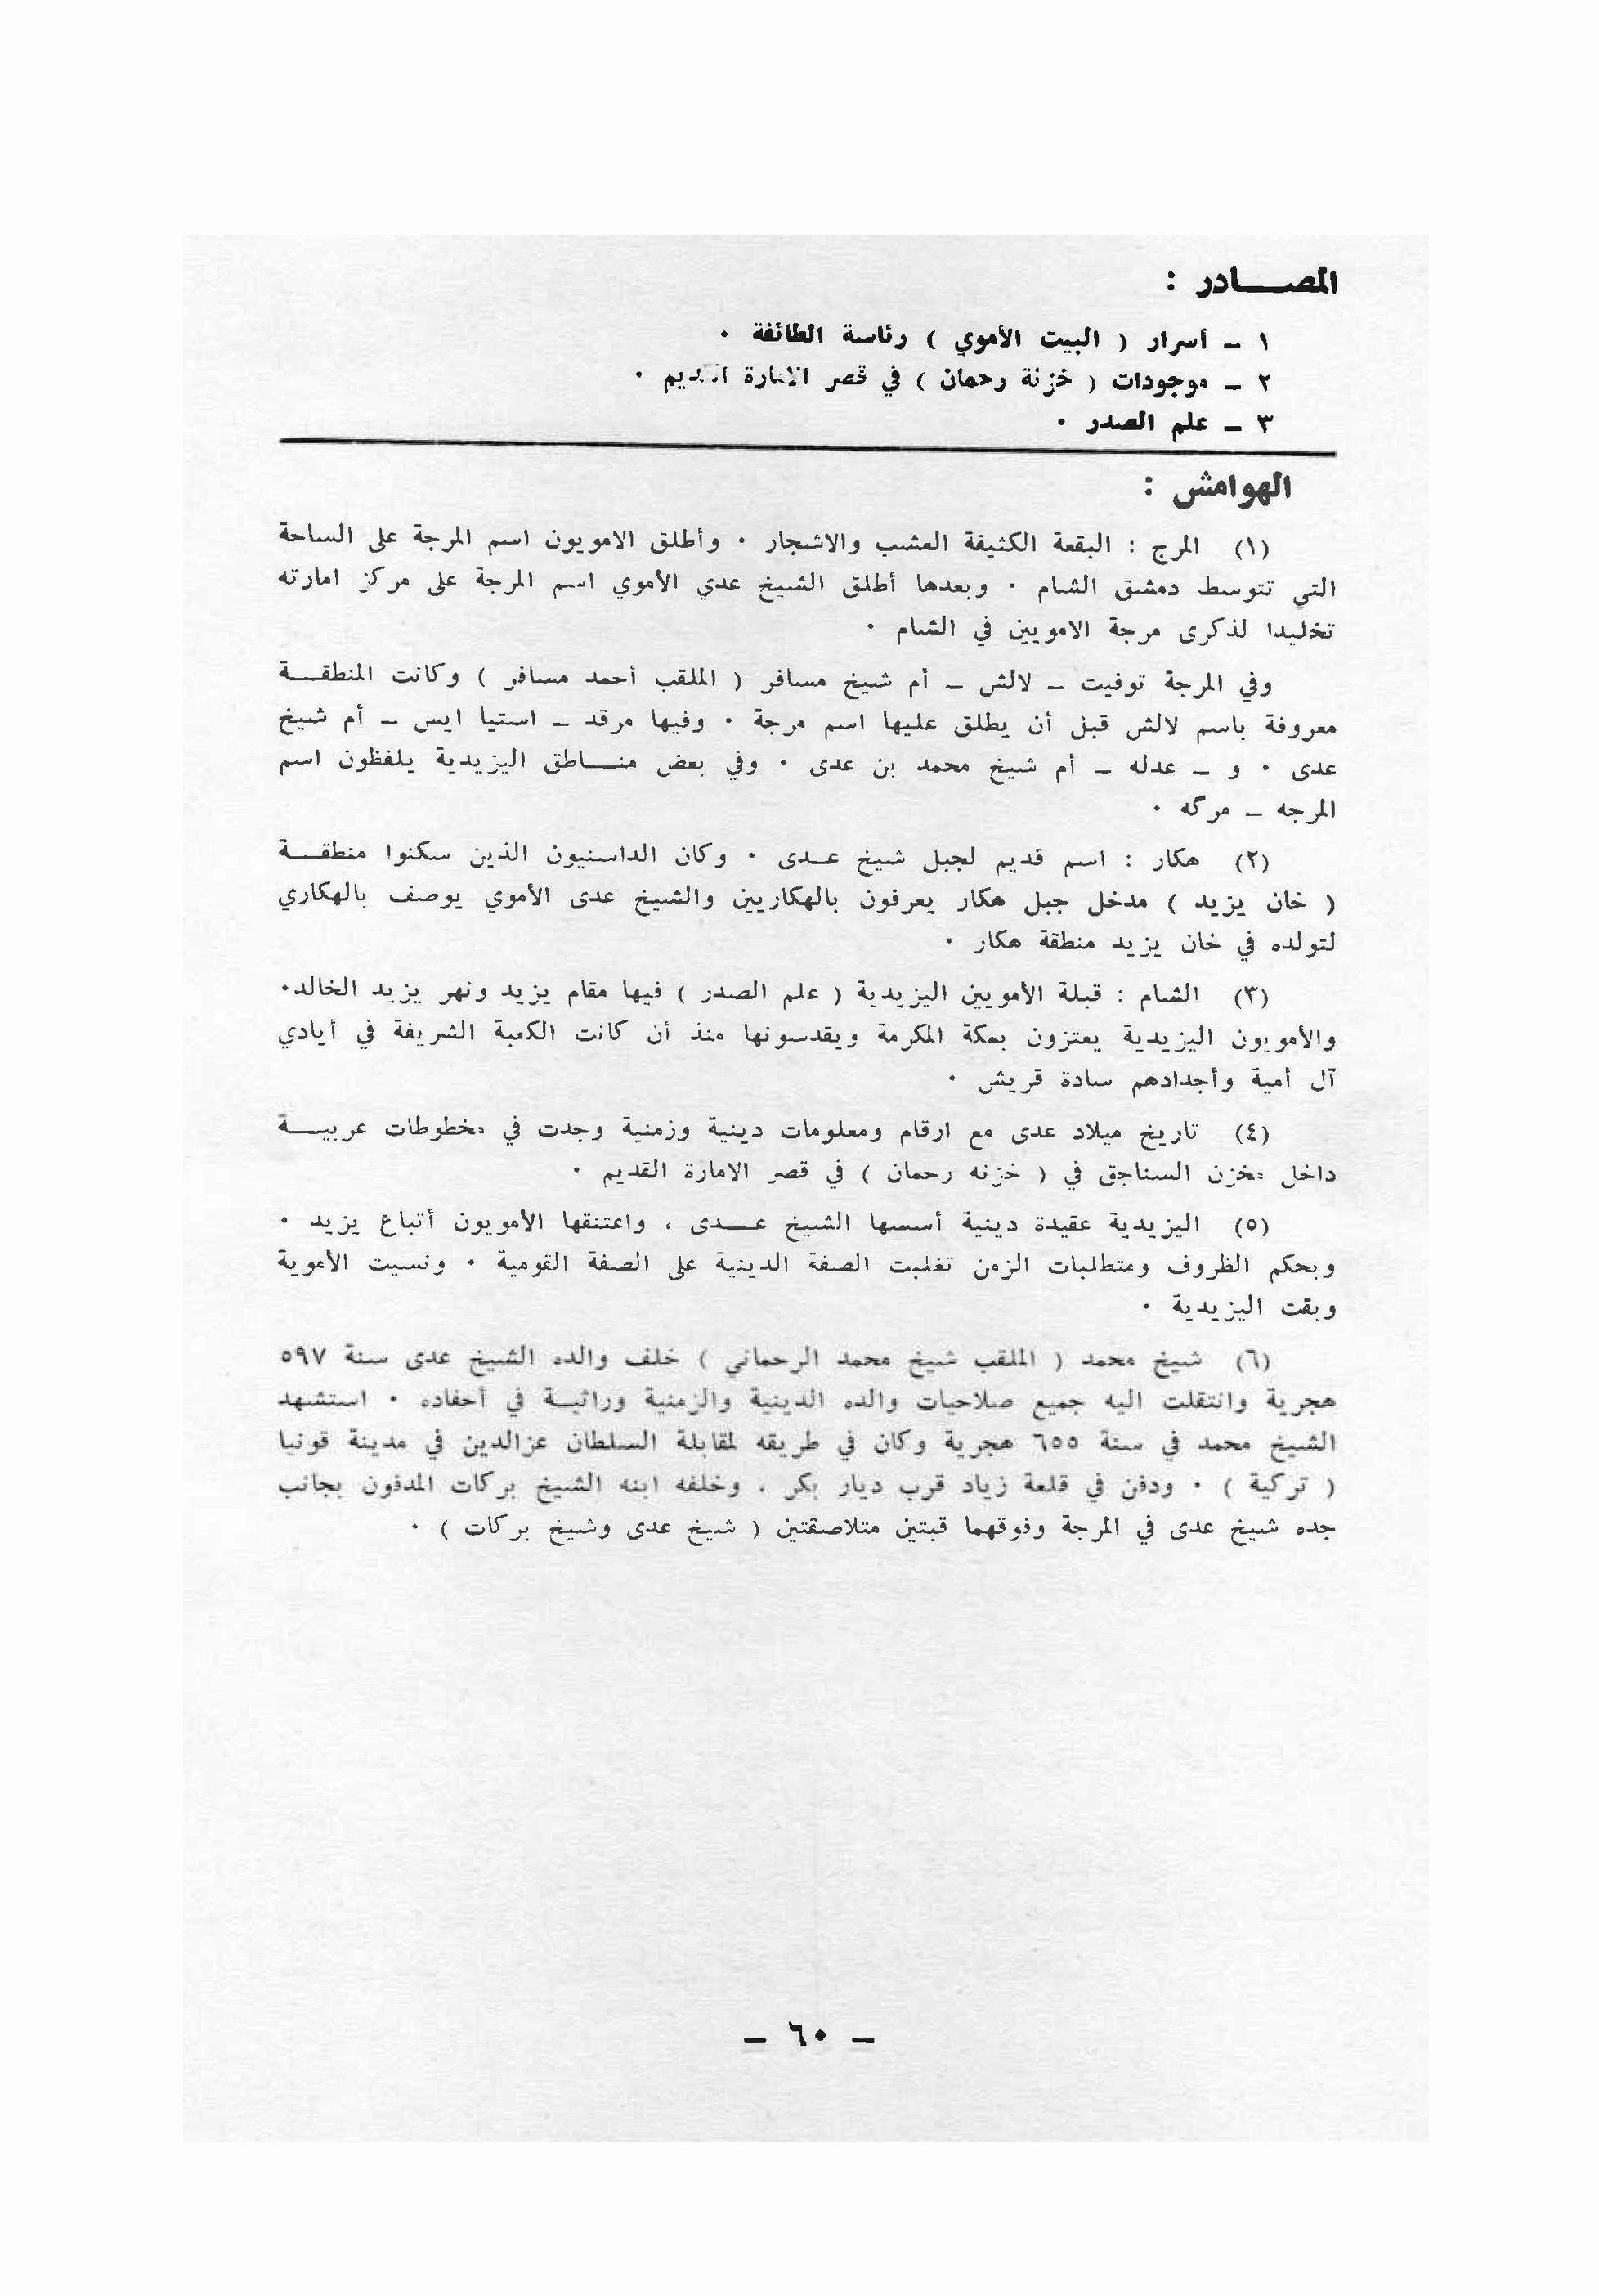 المصــــادر :
١ ــ أسرار ( البيت الأموي ) رئاسة الطائفة ٠
٢ ــ موجودات ( خزنة رحمان ) في قصر الامارة القديم ٠
٣ ــ علم الصدر ٠
الهوامش :
(١) المرج : البقعة الكثيفة العشب والاشجار ٠ وأطلق الامويون اسم المرجة على الساحة
التي تتوسط دمشق الشام ٠ وبعدها أطلق الشيخ عدي الأموي اسم المرجة على مركز امارته
تخليدا لذكرى مرجة الامويين في الشام ٠
وفي المرجة توفيت ــ لالش ــ أم شيخ مسافر ( الملقب أحمد مسافر ) وكانت المنطقـــة
معروفة باسم لالش قبل أن يطلق عليها اسم مرجة ٠ وفيها مرقد ــ استيا ايس ــ أم شيخ
عدى ٠ و ــ عدله ــ أم شيخ محمد بن عدى ٠ وفي بعض منـــاطق اليزيدية يلفظون اسم
المرجه ــ مرگه ٠
(٢) هكار : اسم قديم لجبل شيخ عــدى ٠ وكان الداسنيون الذين سكنوا منطقـــة
( خان يزيد ) مدخل جبل هكار يعرفون بالهكاريين والشيخ عدى الأموي يوصف بالهكاري
لتولده في خان يزيد منطقة هكار ٠
(٣) الشام : قبلة الأمويين اليزيدية ( علم الصدر ) فيها مقام يزيد ونهر يزيد الخالد٠
والأمويون اليزيدية يعتزون بمكة المكرمة ويقدسونها منذ أن كانت الكعبة الشريفة في أيادي
آل أمية وأجدادهم سادة قريش ٠
(٤) تاريخ ميلاد عدى مع ارقام ومعلومات دينية وزمنية وجدت في مخطوطات عربيـــة
داخل مخزن السناجق في ( خزنه رحمان ) في قصر الامارة القديم ٠
(٥) اليزيدية عقيدة دينية أسسها الشيخ عـــدى ، واعتنقها الأمويون أتباع يزيد ٠
وبحكم الظروف ومتطلبات الزمن تغلبت الصفة الدينية على الصفة القومية ٠ ونسيت الأموية
وبقت اليزيدية ٠
(٦) شيخ محمد ( الملقب شيخ محمد الرحماني ) خلف والده الشيخ عدى سنة ٥٩٧
هجرية وانتقلت اليه جميع صلاحيات والده الدينية والزمنية وراثيــة في أحفاده ٠ استشهد
الشيخ محمد في سنة ٦٥٥ هجرية وكان في طريقه لمقابلة السلطان عزالدين في مدينة قونيا
( تركية ) ٠ ودفن في قلعة زياد قرب ديار بكر ، وخلفه ابنه الشيخ بركات المدفون بجانب
جده شيخ عدى في المرجة وفوقهما قبتين متلاصقتين ( شيخ عدى وشيخ بركات ) ٠
ــ ٦٠ ــ